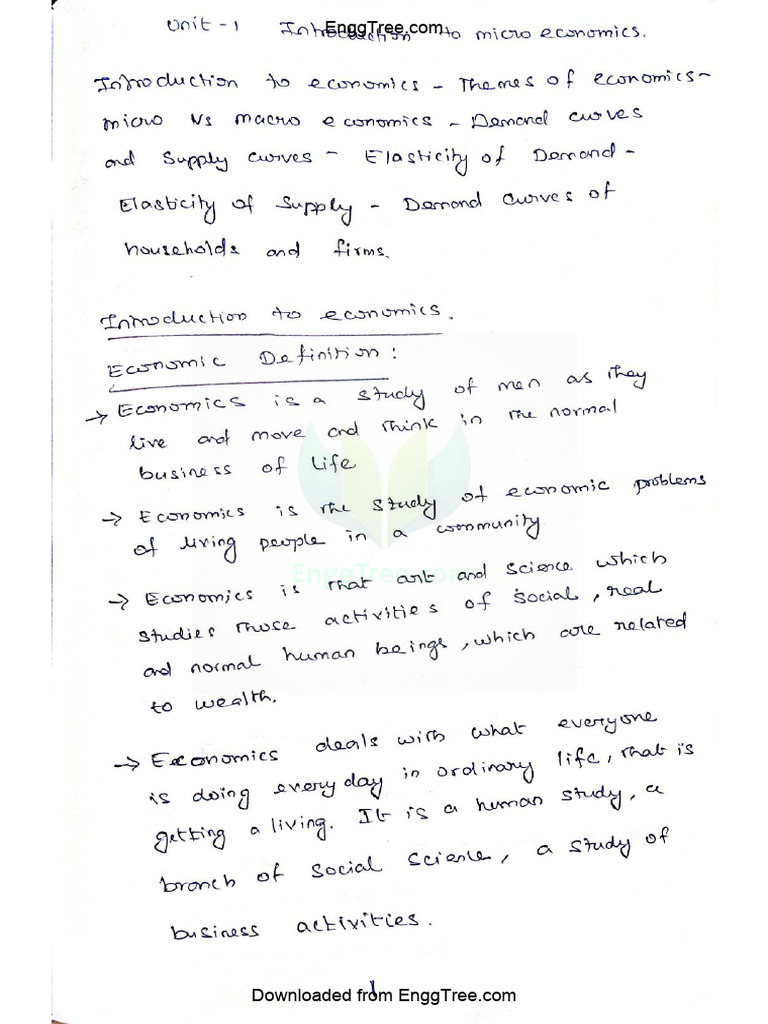 EnggTree.com
Unit - 1 Introduction to micro economics.
Introduction to economics - Themes of economics -
micro Vs macro economics - Demand curves
and Supply curves - Elasticity of Demand -
Elasticity of Supply - Demand curves of
households and firms.
Introduction to economics.
Economic Definition:
→ Economics is a study of men as they
live and move and think in the normal
business of life
→ Economics is the study of economic problems
of living people in a community
EnggTree.com
→ Economics is that art and science which
studies those activities of social, real
and normal human beings, which are related
to wealth.
→ Economics deals with what everyone
is doing everyday in ordinary life, that is
getting a living. It is a human study, a
branch of social science, a study of
business activities.
1
Downloaded from EnggTree.com